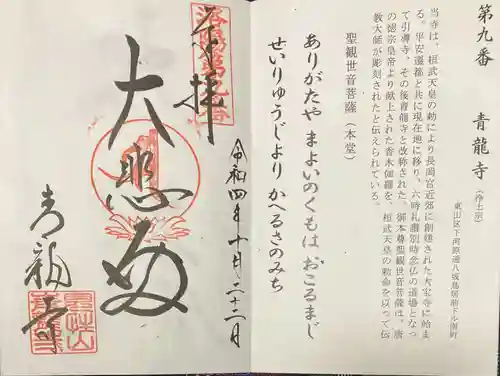 第九番 青龍寺（浄土宗）
東山区下河原通八坂鳥居前下ル南町
当寺は、桓武天皇の勅により長岡宮近郊に創建された大宝寺に始ま
る。平安遷都と共に現在地に移り、六時礼讃別時念仏の道場となっ
て引導寺、その後青龍寺と改称された。御本尊聖観世音菩薩は、唐
の徳宗皇帝より献上された香木伽羅を、桓武天皇の勅命を以って伝
教大師が彫刻されたと伝えられている。
聖観世音菩薩（本堂）
ありがたや まよいのくもは おこるまじ
せいりゅうじより かへるさのみち
奉拝
洛陽第九番
令和四年十月二十二日
大悲殿
青龍寺